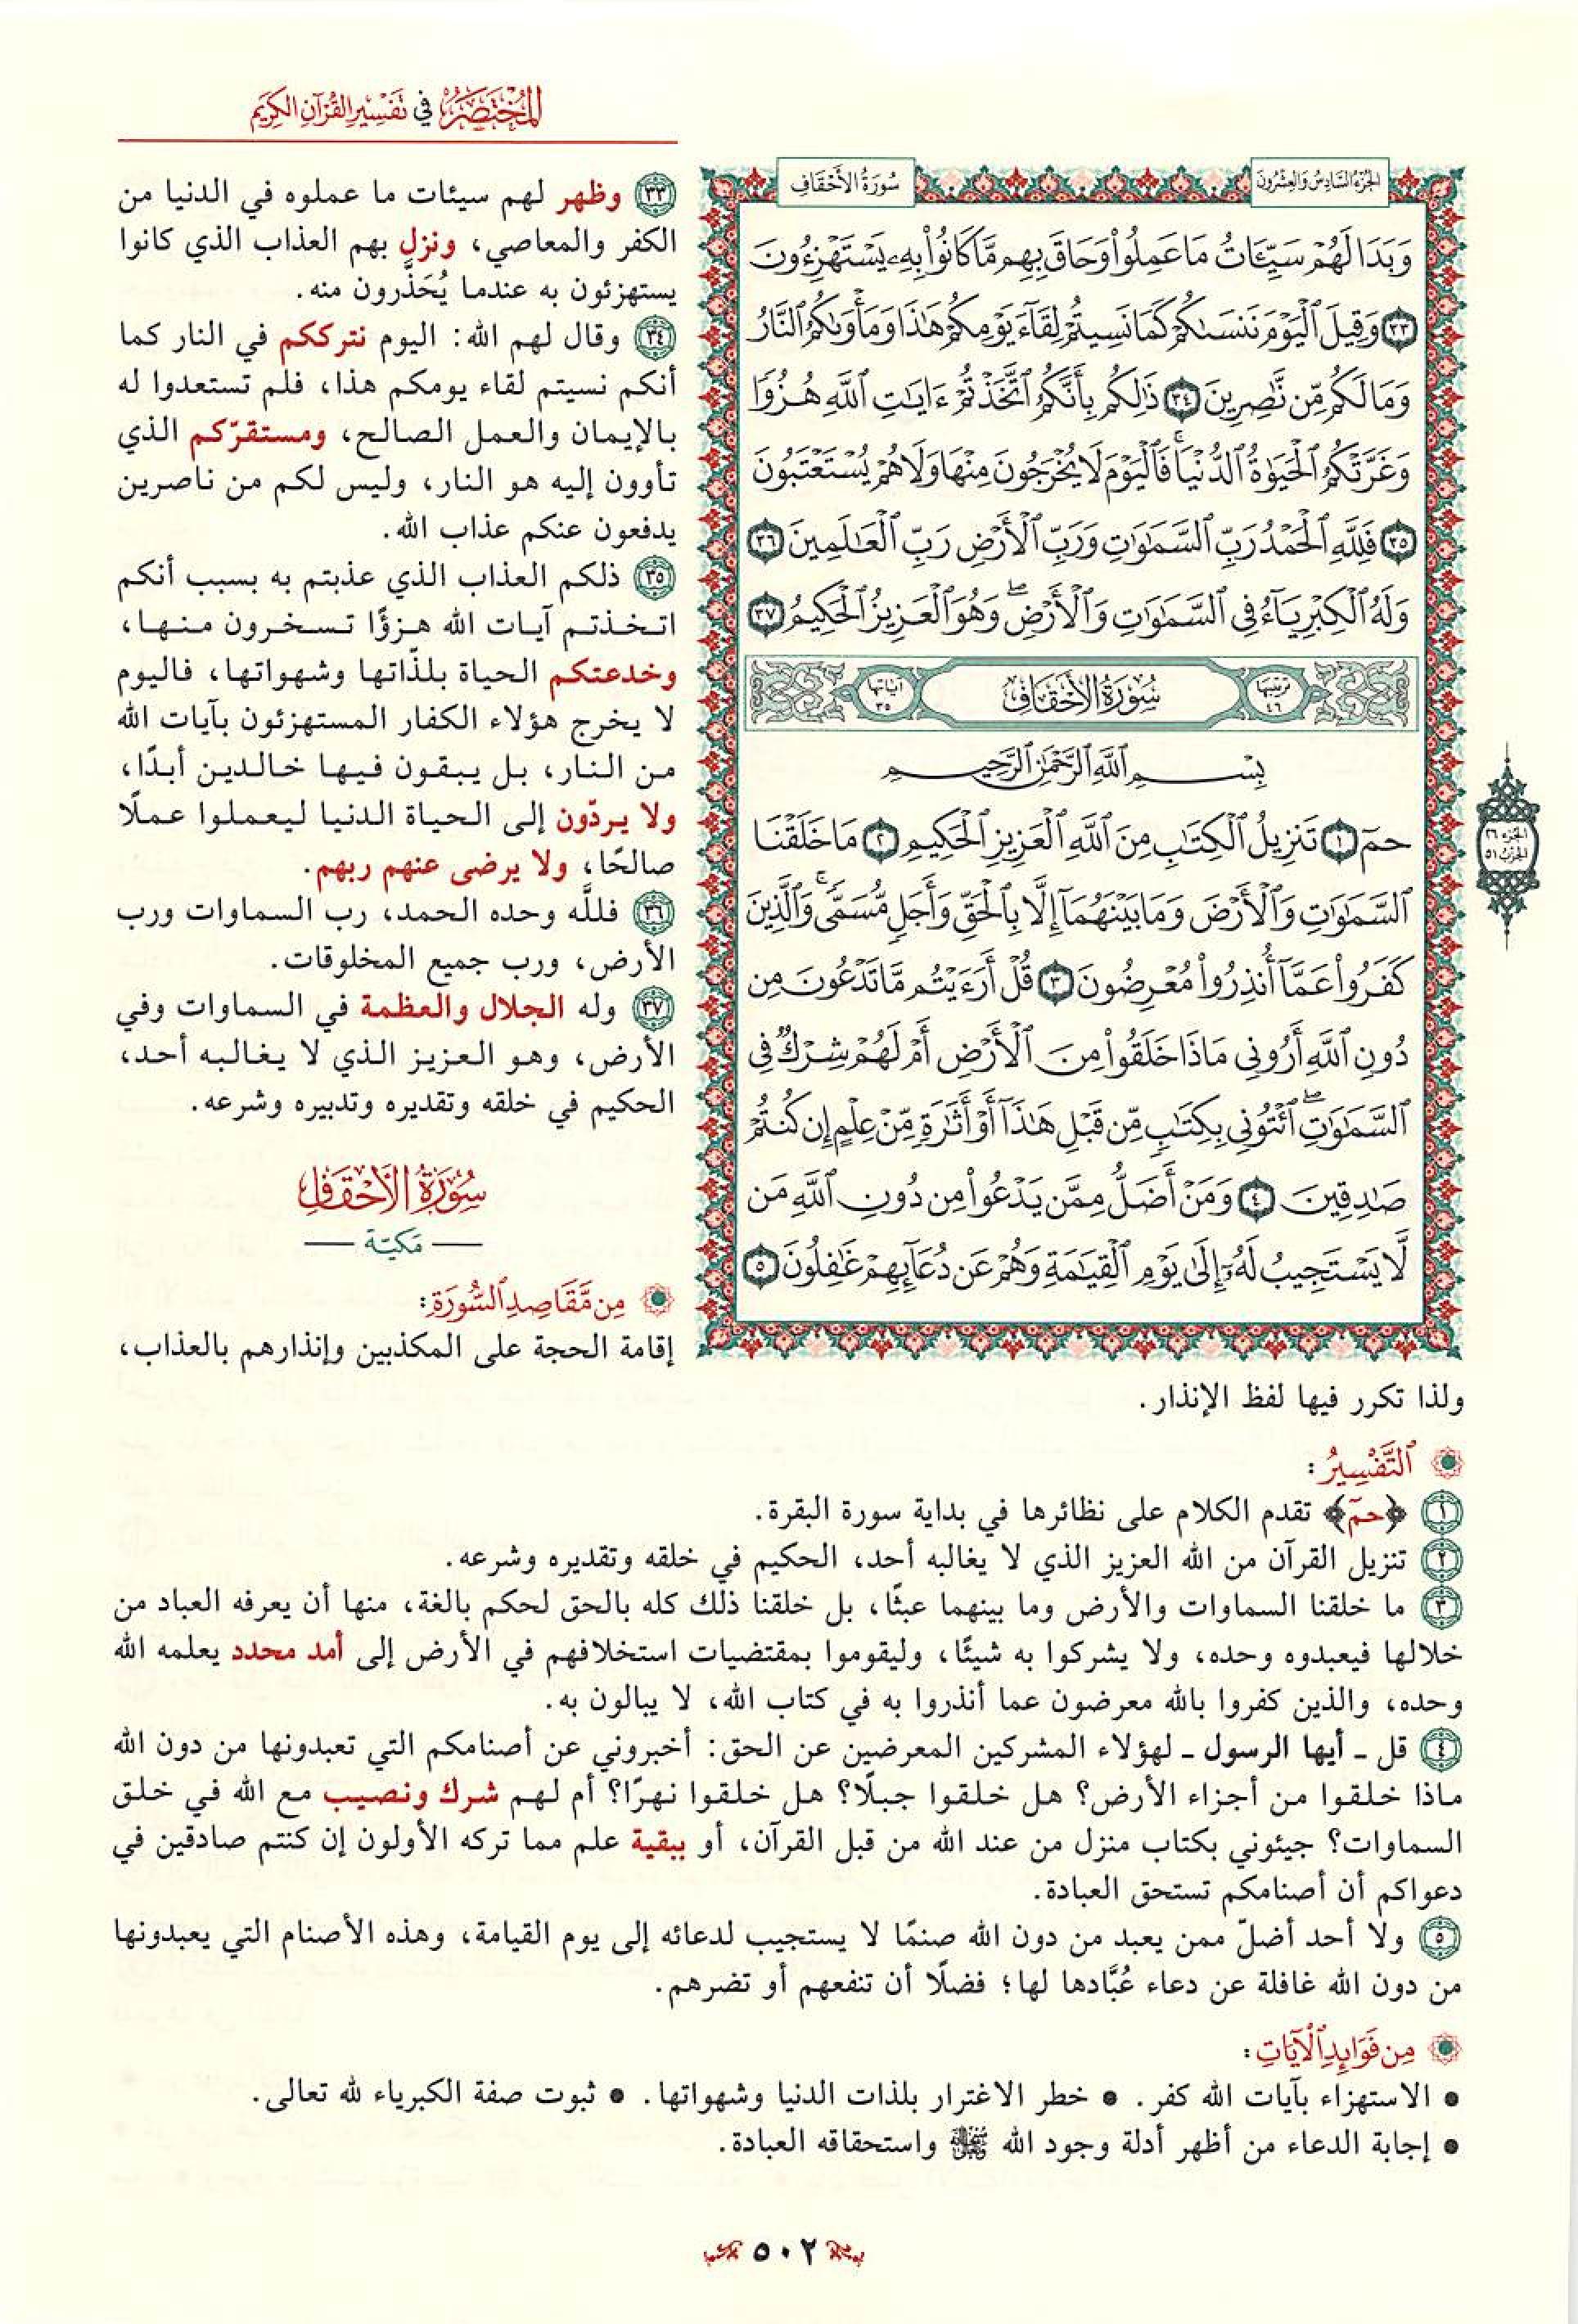 المختصر في تفسير القرآن الكريم
الجزء السادس والعشرون
سورة الأحقاف
وَبَدَا لَهُمْ سَيِّـَٔاتُ مَا عَمِلُوا۟ وَحَاقَ بِهِم مَّا كَانُوا۟ بِهِۦ يَسْتَهْزِءُونَ
٣٣ وَقِيلَ ٱلْيَوْمَ نَنسَىٰكُمْ كَمَا نَسِيتُمْ لِقَآءَ يَوْمِكُمْ هَٰذَا وَمَأْوَىٰكُمُ ٱلنَّارُ
وَمَا لَكُم مِّن نَّٰصِرِينَ ٣٤ ذَٰلِكُم بِأَنَّكُمُ ٱتَّخَذْتُمْ ءَايَٰتِ ٱللَّهِ هُزُوًا
وَغَرَّتْكُمُ ٱلْحَيَوٰةُ ٱلدُّنْيَا ۚ فَٱلْيَوْمَ لَا يُخْرَجُونَ مِنْهَا وَلَا هُمْ يُسْتَعْتَبُونَ
٣٥ فَلِلَّهِ ٱلْحَمْدُ رَبِّ ٱلسَّمَٰوَٰتِ وَرَبِّ ٱلْأَرْضِ رَبِّ ٱلْعَٰلَمِينَ ٣٦
وَلَهُ ٱلْكِبْرِيَآءُ فِى ٱلسَّمَٰوَٰتِ وَٱلْأَرْضِ ۖ وَهُوَ ٱلْعَزِيزُ ٱلْحَكِيمُ ٣٧
ترتيبها ٤٦ سُورَةُ الأَحْقَافِ آياتها ٣٥
بِسْمِ ٱللَّهِ ٱلرَّحْمَٰنِ ٱلرَّحِيمِ
حمٓ ١ تَنزِيلُ ٱلْكِتَٰبِ مِنَ ٱللَّهِ ٱلْعَزِيزِ ٱلْحَكِيمِ ٢ مَا خَلَقْنَا
ٱلسَّمَٰوَٰتِ وَٱلْأَرْضَ وَمَا بَيْنَهُمَآ إِلَّا بِٱلْحَقِّ وَأَجَلٍ مُّسَمًّى ۚ وَٱلَّذِينَ
كَفَرُوا۟ عَمَّآ أُنذِرُوا۟ مُعْرِضُونَ ٣ قُلْ أَرَءَيْتُم مَّا تَدْعُونَ مِن
دُونِ ٱللَّهِ أَرُونِى مَاذَا خَلَقُوا۟ مِنَ ٱلْأَرْضِ أَمْ لَهُمْ شِرْكٌ فِى
ٱلسَّمَٰوَٰتِ ۖ ٱئْتُونِى بِكِتَٰبٍ مِّن قَبْلِ هَٰذَآ أَوْ أَثَٰرَةٍ مِّنْ عِلْمٍ إِن كُنتُمْ
صَٰدِقِينَ ٤ وَمَنْ أَضَلُّ مِمَّن يَدْعُوا۟ مِن دُونِ ٱللَّهِ مَن
لَّا يَسْتَجِيبُ لَهُۥٓ إِلَىٰ يَوْمِ ٱلْقِيَٰمَةِ وَهُمْ عَن دُعَآئِهِمْ غَٰفِلُونَ ٥
الجزء ٢٦
الحزب ٥١
٣٣ وظهر لهم سيئات ما عملوه في الدنيا من
الكفر والمعاصي، ونزل بهم العذاب الذي كانوا
يستهزئون به عندما يُحَذَّرون منه.
٣٤ وقال لهم الله: اليوم نترككم في النار كما
أنكم نسيتم لقاء يومكم هذا، فلم تستعدوا له
بالإيمان والعمل الصالح، ومستقرّكم الذي
تأوون إليه هو النار، وليس لكم من ناصرين
يدفعون عنكم عذاب الله.
٣٥ ذلكم العذاب الذي عذبتم به بسبب أنكم
اتخذتم آيات الله هزؤًا تسخرون منها،
وخدعتكم الحياة بلذّاتها وشهواتها، فاليوم
لا يخرج هؤلاء الكفار المستهزئون بآيات الله
من النار، بل يبقون فيها خالدين أبدًا،
ولا يردّون إلى الحياة الدنيا ليعملوا عملًا
صالحًا، ولا يرضى عنهم ربهم.
٣٦ فللَّه وحده الحمد، رب السماوات ورب
الأرض، ورب جميع المخلوقات.
٣٧ وله الجلال والعظمة في السماوات وفي
الأرض، وهو العزيز الذي لا يغالبه أحد،
الحكيم في خلقه وتقديره وتدبيره وشرعه.
سُورَةُ الأَحْقَافِ
مَكيّة
مِن مَّقَاصِدِ ٱلسُّورَةِ:
إقامة الحجة على المكذبين وإنذارهم بالعذاب،
ولذا تكرر فيها لفظ الإنذار.
ٱلتَّفْسِيرُ:
١ ﴿حمٓ﴾ تقدم الكلام على نظائرها في بداية سورة البقرة.
٢ تنزيل القرآن من الله العزيز الذي لا يغالبه أحد، الحكيم في خلقه وتقديره وشرعه.
٣ ما خلقنا السماوات والأرض وما بينهما عبثًا، بل خلقنا ذلك كله بالحق لحكم بالغة، منها أن يعرفه العباد من
خلالها فيعبدوه وحده، ولا يشركوا به شيئًا، وليقوموا بمقتضيات استخلافهم في الأرض إلى أمد محدد يعلمه الله
وحده، والذين كفروا بالله معرضون عما أنذروا به في كتاب الله، لا يبالون به.
٤ قل ـ أيها الرسول ـ لهؤلاء المشركين المعرضين عن الحق: أخبروني عن أصنامكم التي تعبدونها من دون الله
ماذا خلقوا من أجزاء الأرض؟ هل خلقوا جبلًا؟ هل خلقوا نهرًا؟ أم لهم شرك ونصيب مع الله في خلق
السماوات؟ جيئوني بكتاب منزل من عند الله من قبل القرآن، أو ببقية علم مما تركه الأولون إن كنتم صادقين في
دعواكم أن أصنامكم تستحق العبادة.
٥ ولا أحد أضلّ ممن يعبد من دون الله صنمًا لا يستجيب لدعائه إلى يوم القيامة، وهذه الأصنام التي يعبدونها
من دون الله غافلة عن دعاء عُبَّادها لها؛ فضلًا أن تنفعهم أو تضرهم.
مِن فَوَائِدِ ٱلْآيَاتِ:
• الاستهزاء بآيات الله كفر. • خطر الاغترار بلذات الدنيا وشهواتها. • ثبوت صفة الكبرياء لله تعالى.
• إجابة الدعاء من أظهر أدلة وجود الله ﷻ واستحقاقه العبادة.
٥٠٢